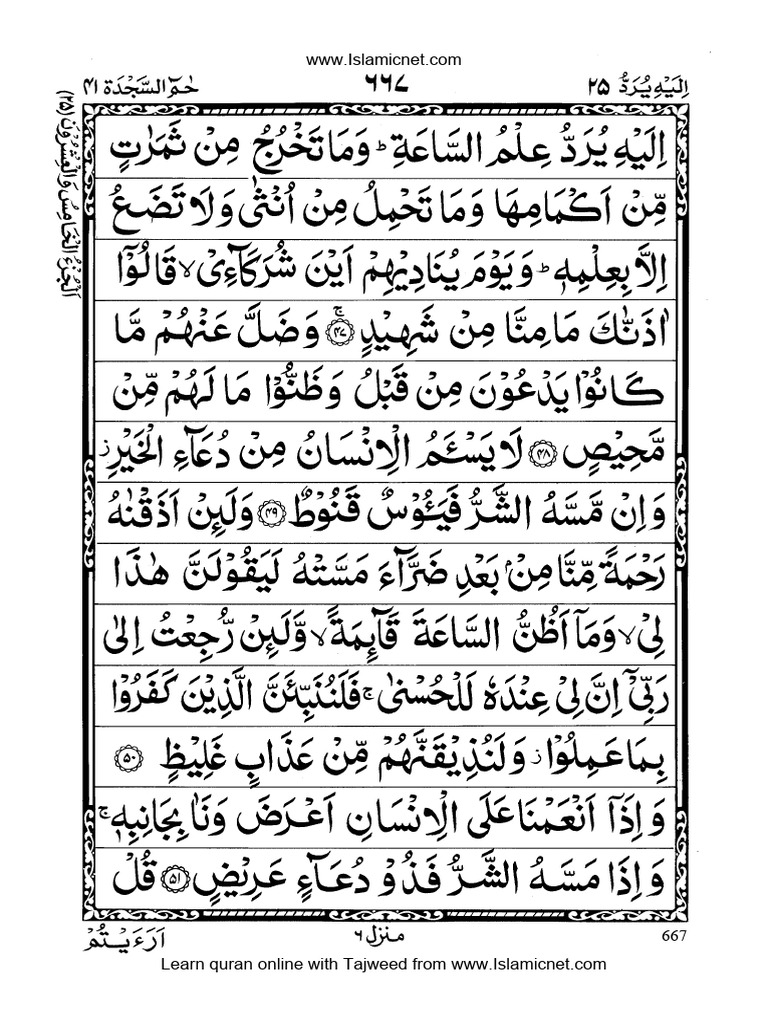 www.Islamicnet.com
اِلَيْهِ يُرَدُّ ٢٥ ٦٦٧ حٰمٓ السَّجْدَة ٤١
اَلْجُزْءُ الْخَامِسُ وَالْعِشْرُوْنَ (٢٥)
اِلَيْهِ يُرَدُّ عِلْمُ السَّاعَةِ ؕ وَمَا تَخْرُجُ مِنْ ثَمَرٰتٍ
مِّنْ اَكْمَامِهَا وَمَا تَحْمِلُ مِنْ اُنْثٰى وَلَا تَضَعُ
اِلَّا بِعِلْمِهٖ ؕ وَيَوْمَ يُنَادِيْهِمْ اَيْنَ شُرَكَآءِيْ ۙ قَالُوْٓا
اٰذَنّٰكَ مَا مِنَّا مِنْ شَهِيْدٍ ۚ ﴿٤٧﴾ وَضَلَّ عَنْهُمْ مَّا
كَانُوْا يَدْعُوْنَ مِنْ قَبْلُ وَظَنُّوْا مَا لَهُمْ مِّنْ
مَّحِيْصٍ ﴿٤٨﴾ لَا يَسْـَٔمُ الْاِنْسَانُ مِنْ دُعَآءِ الْخَيْرِ ز
وَاِنْ مَّسَّهُ الشَّرُّ فَيَـُٔوْسٌ قَنُوْطٌ ﴿٤٩﴾ وَلَئِنْ اَذَقْنٰهُ
رَحْمَةً مِّنَّا مِنْۢ بَعْدِ ضَرَّآءَ مَسَّتْهُ لَيَقُوْلَنَّ هٰذَا
لِيْ ۙ وَمَآ اَظُنُّ السَّاعَةَ قَآئِمَةً ۙ وَّلَئِنْ رُّجِعْتُ اِلٰى
رَبِّيْٓ اِنَّ لِيْ عِنْدَهٗ لَلْحُسْنٰى ۚ فَلَنُنَبِّئَنَّ الَّذِيْنَ كَفَرُوْا
بِمَا عَمِلُوْا ز وَلَنُذِيْقَنَّهُمْ مِّنْ عَذَابٍ غَلِيْظٍ ﴿٥٠﴾
وَاِذَآ اَنْعَمْنَا عَلَى الْاِنْسَانِ اَعْرَضَ وَنَاٰ بِجَانِبِهٖ ۚ
وَاِذَا مَسَّهُ الشَّرُّ فَذُوْ دُعَآءٍ عَرِيْضٍ ﴿٥١﴾ قُلْ
667 منزل ٦ اَرَءَيْتُمْ
Learn quran online with Tajweed from www.Islamicnet.com